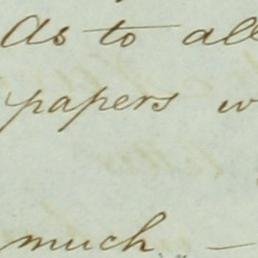 As to all
papers w
much —